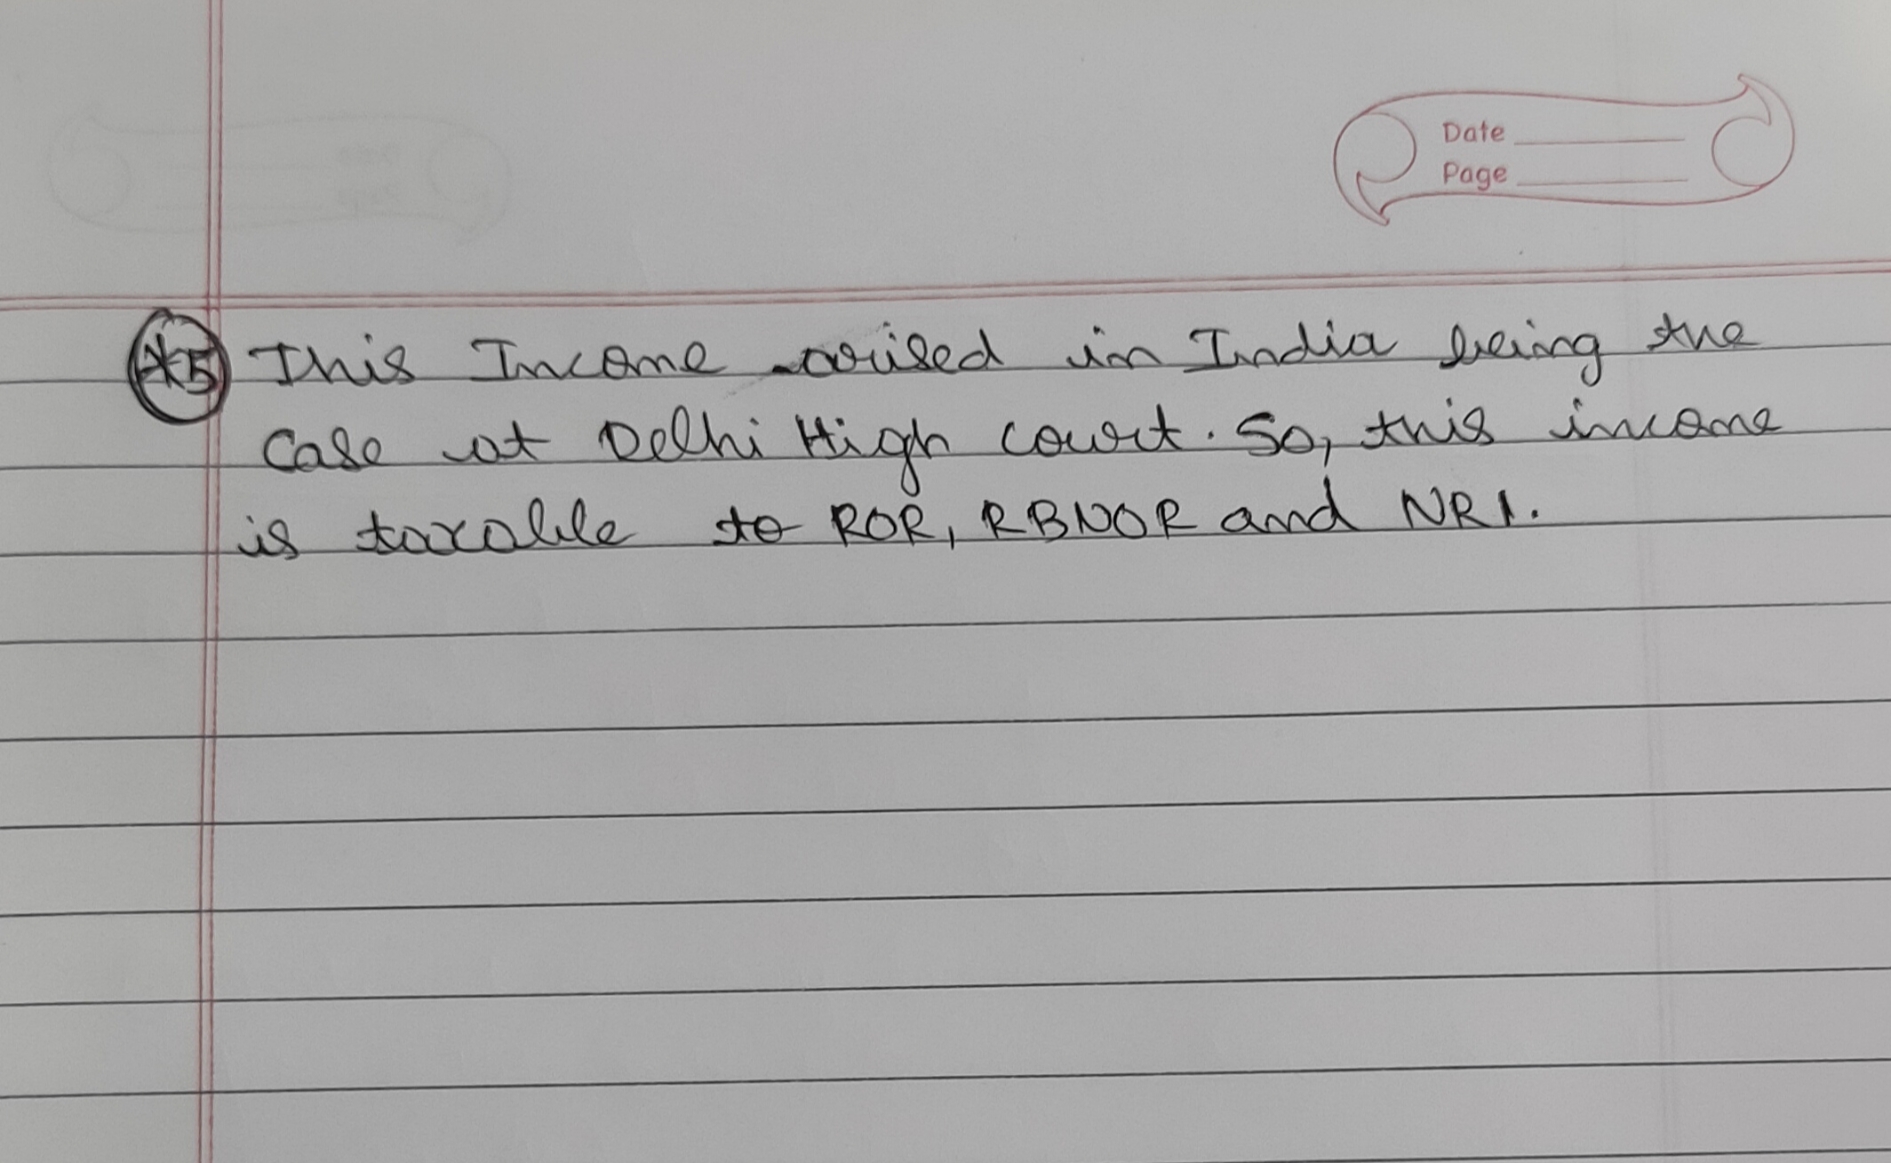 Date
Page
*5 This Income arised in India being the
Case at Delhi High court. So, this income
is taxable to ROR, RBNOR and NRI.